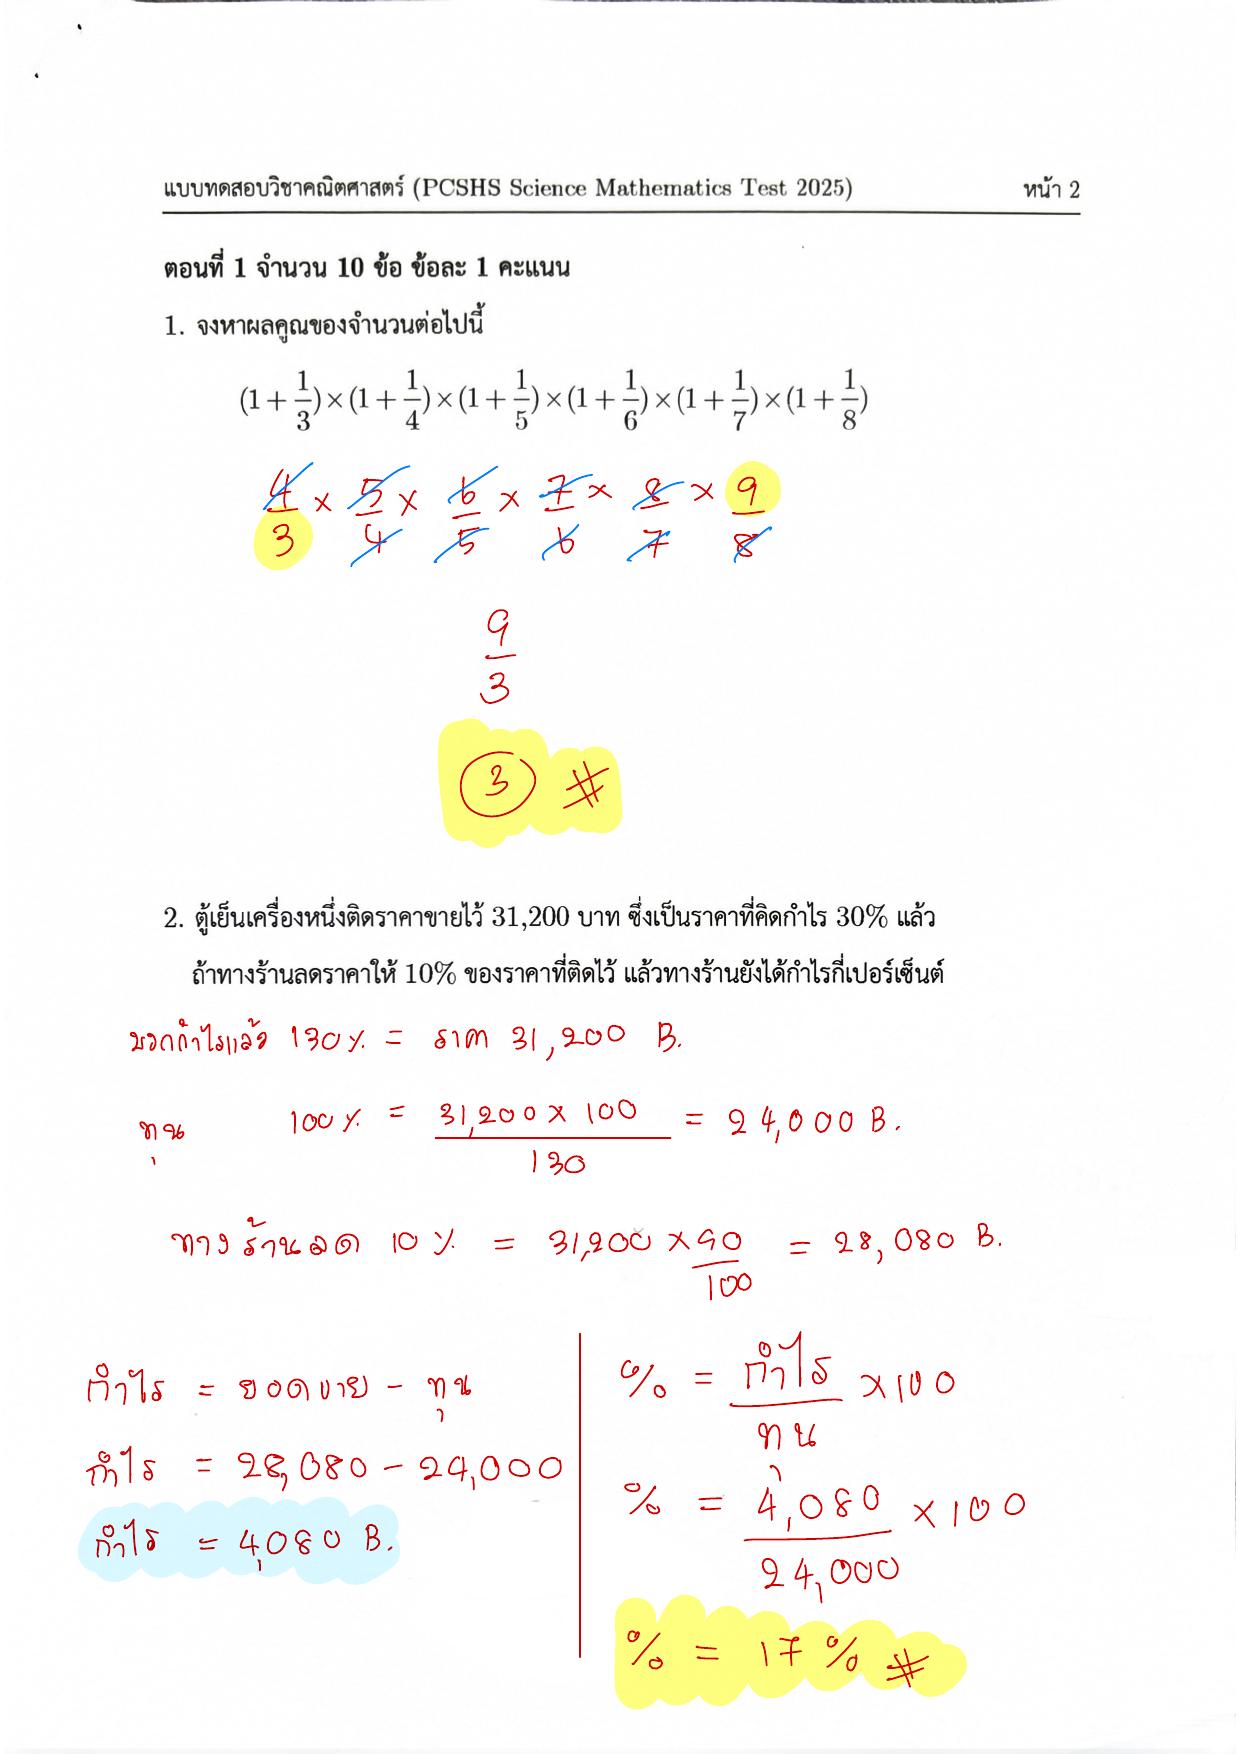 แบบทดสอบวิชาคณิตศาสตร์ (PCSHS Science Mathematics Test 2025) หน้า 2
ตอนที่ 1 จำนวน 10 ข้อ ข้อละ 1 คะแนน
1. จงหาผลคูณของจำนวนต่อไปนี้
(1 + 1/3) × (1 + 1/4) × (1 + 1/5) × (1 + 1/6) × (1 + 1/7) × (1 + 1/8)
4/3 × 5/4 × 6/5 × 7/6 × 8/7 × 9/8
9/3
3 #
2. ตู้เย็นเครื่องหนึ่งติดราคาขายไว้ 31,200 บาท ซึ่งเป็นราคาที่คิดกำไร 30% แล้ว
ถ้าทางร้านลดราคาให้ 10% ของราคาที่ติดไว้ แล้วทางร้านยังได้กำไรกี่เปอร์เซ็นต์
บวกกำไรแล้ว 130% = ราคา 31,200 B.
ทุน 100% = 31,200 × 100 / 130 = 24,000 B.
ทางร้านลด 10% = 31,200 × 90/100 = 28,080 B.
กำไร = ยอดขาย - ทุน
กำไร = 28,080 - 24,000
กำไร = 4,080 B.
% = กำไร/ทุน × 100
% = 4,080/24,000 × 100
% = 17% #